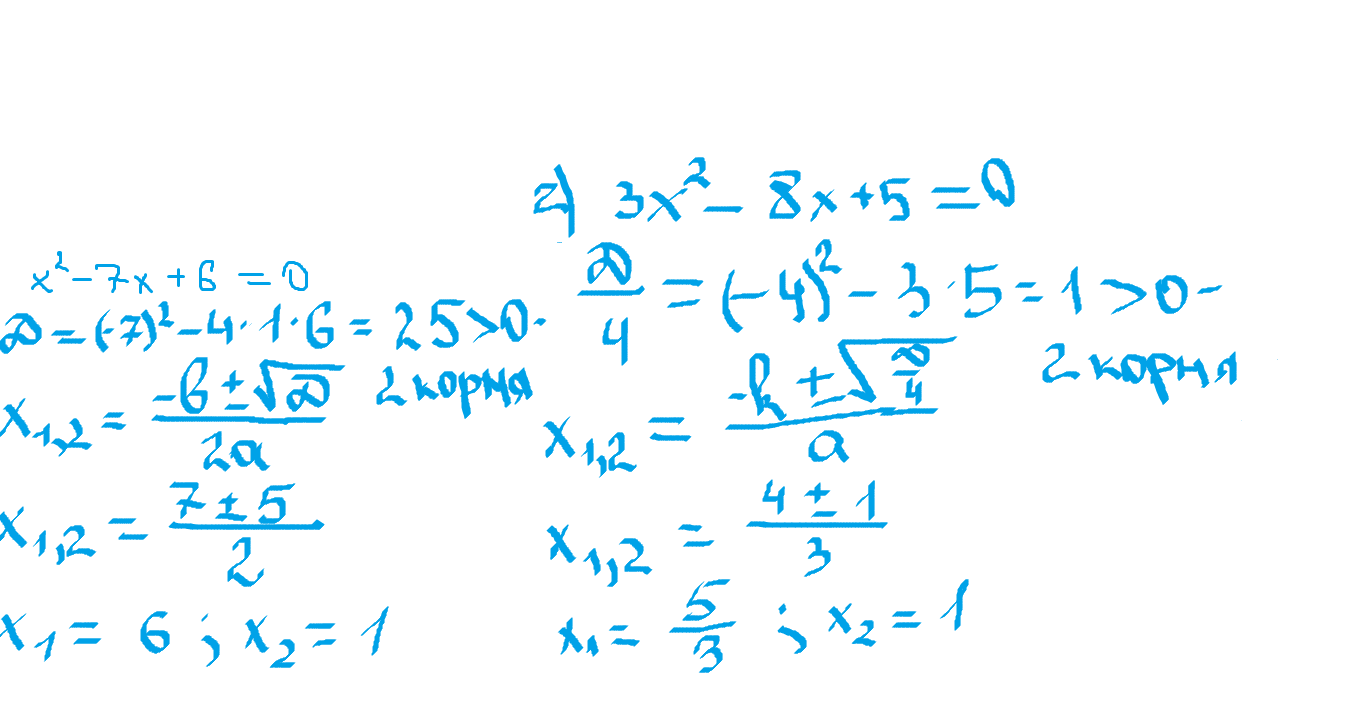 x² − 7x + 6 = 0
D = (−7)² − 4 · 1 · 6 = 25 > 0 -
2 корня
x₁,₂ = (−b ± √D) / 2a
x₁,₂ = (7 ± 5) / 2
x₁ = 6 ; x₂ = 1
г) 3x² − 8x + 5 = 0
D/4 = (−4)² − 3 · 5 = 1 > 0 -
2 корня
x₁,₂ = (−k ± √(D/4)) / a
x₁,₂ = (4 ± 1) / 3
x₁ = 5/3 ; x₂ = 1